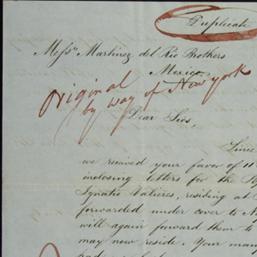 Duplicate
Mess^rs Martinez del Rio Brothers
Mexico
original
by way of New york
Dear Sirs,
Since
we received your favor of 11
inclosing letters for the
Ignatio Valieres, residing at
forwarded under cover to
will again forward them to
may now reside. Your